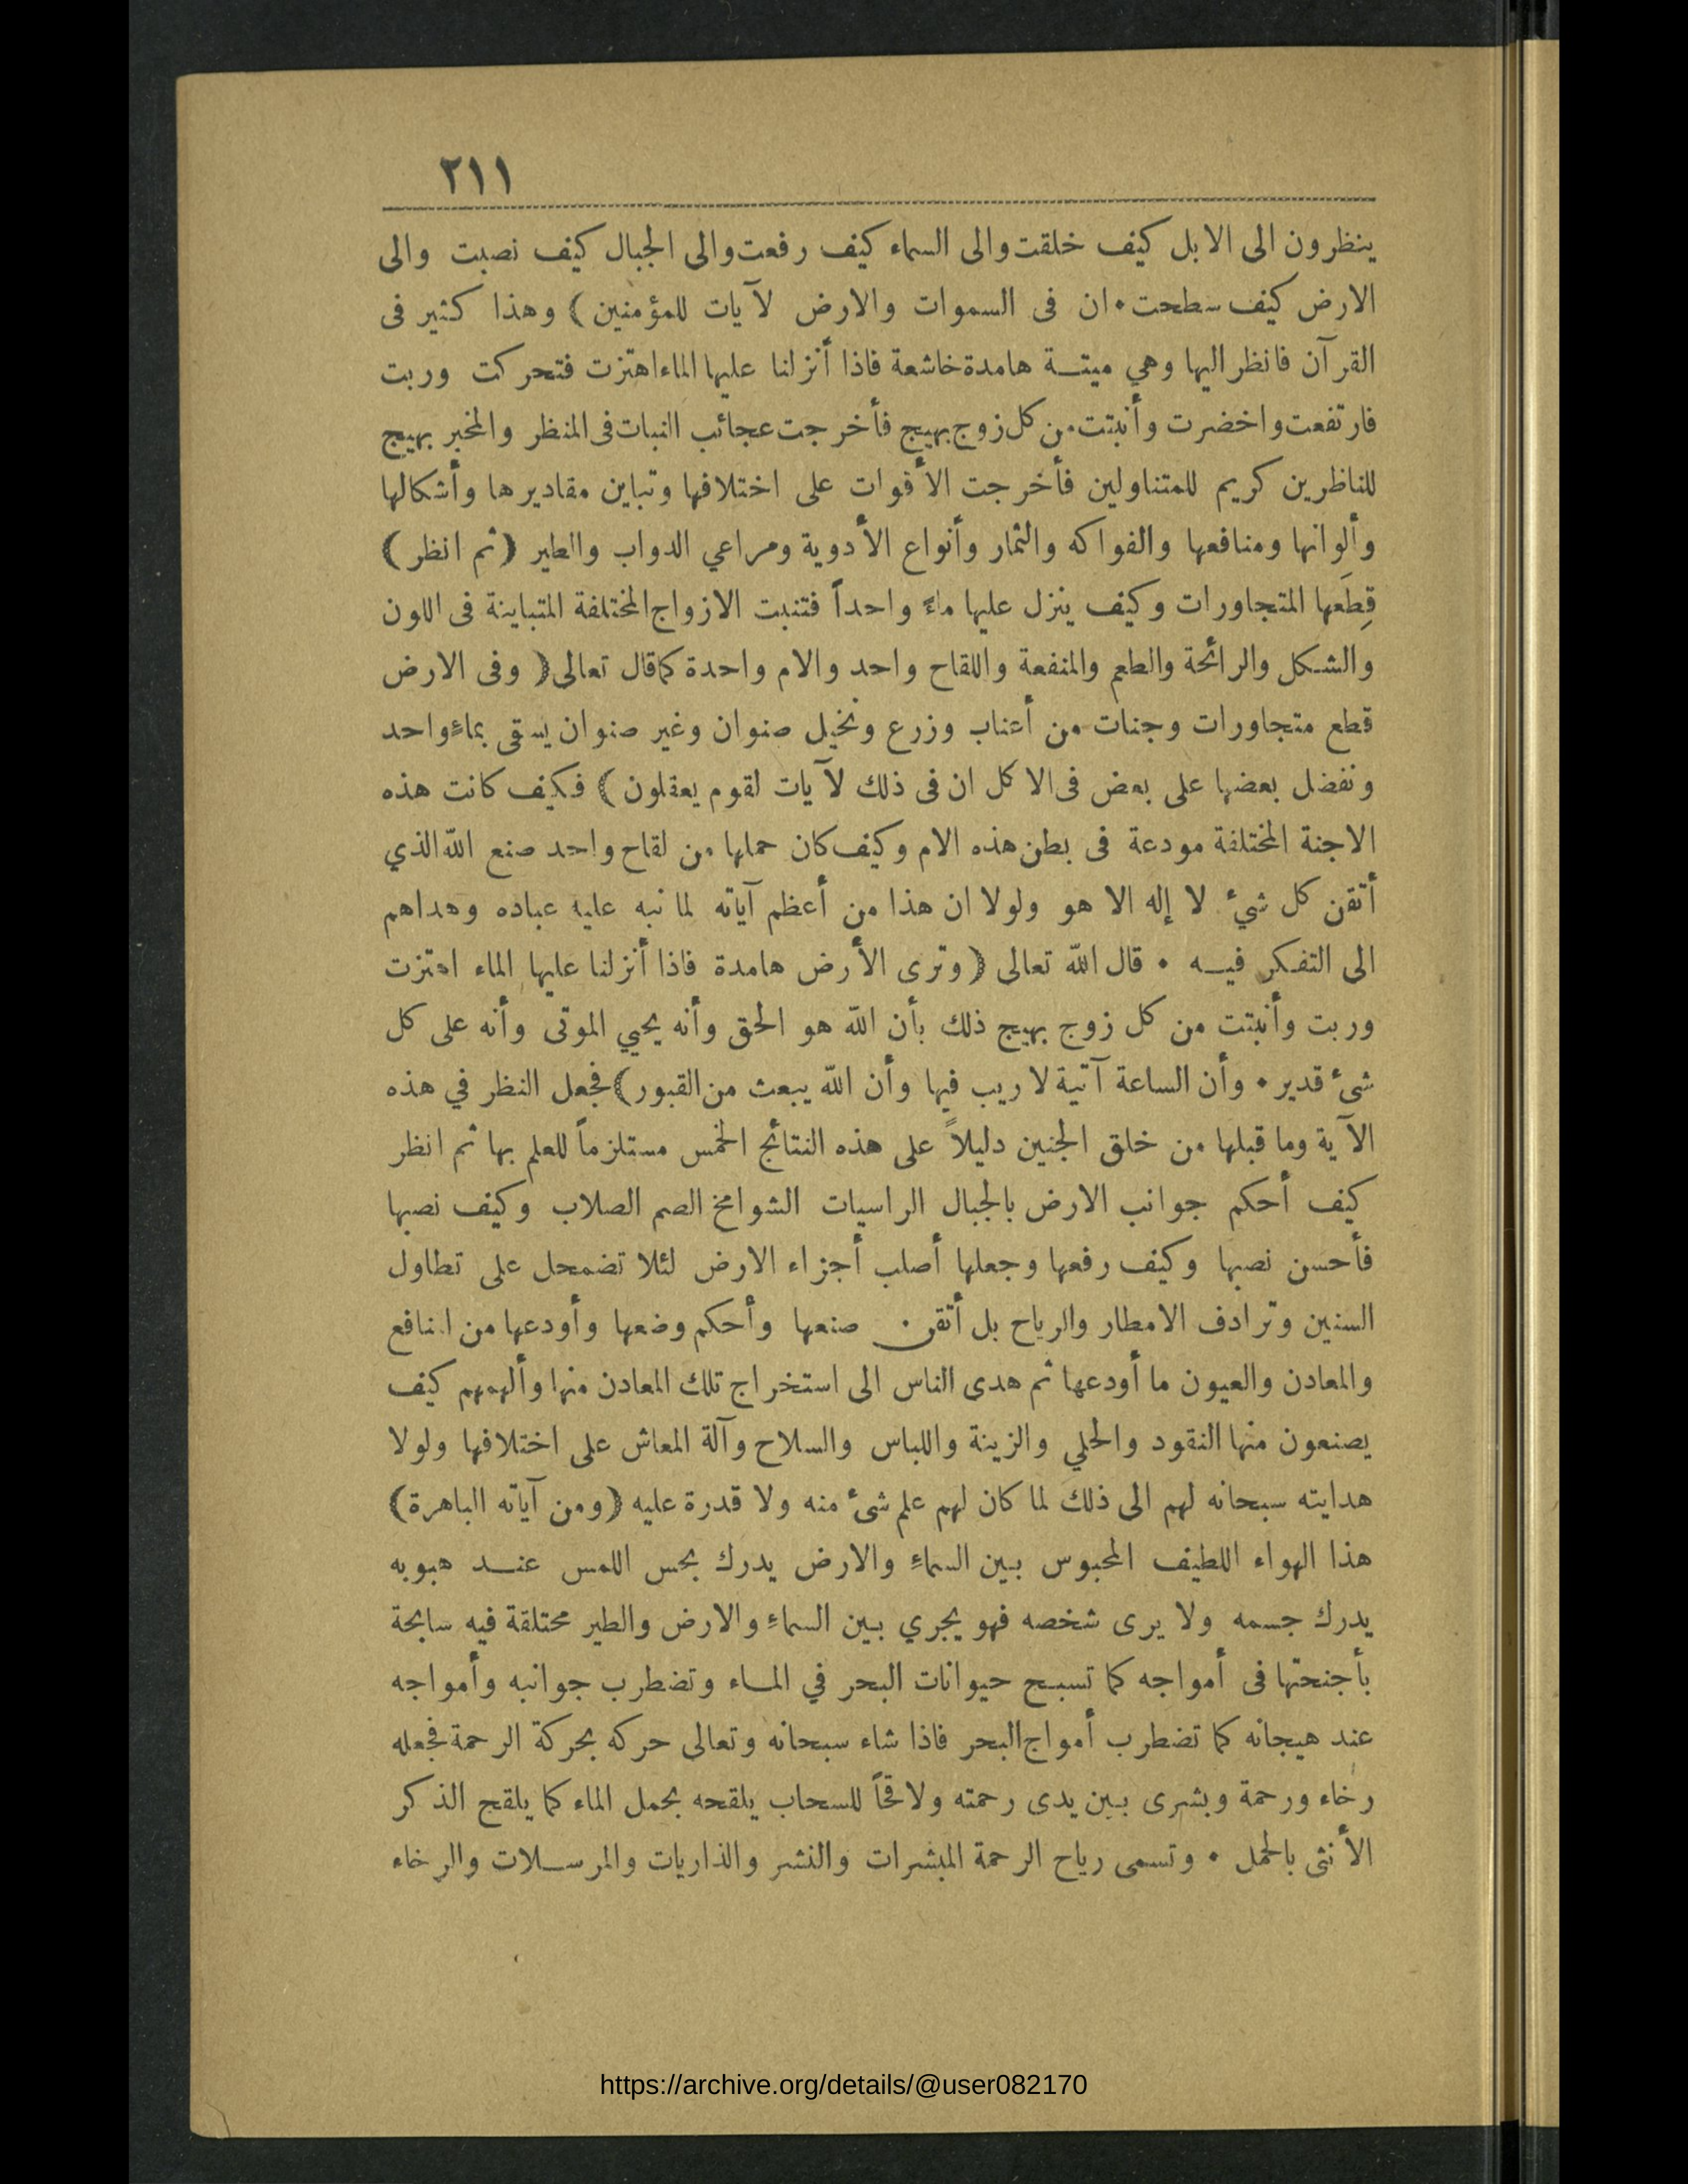 ٢١١
ينظرون الى الابل كيف خلقت والى السماء كيف رفعت والى الجبال كيف نصبت والى
الارض كيف سطحت • ان فى السموات والارض لآيات للمؤمنين ) وهذا كثير فى
القرآن فانظر اليها وهي ميتة هامدة خاشعة فاذا أنزلنا عليها الماء اهتزت فتحركت وربت
فارتفعت واخضرت وأنبتت من كل زوج بهيج فأخرجت عجائب النبات فى المنظر والمخبر بهيج
للناظرين كريم للمتناولين فأخرجت الأقوات على اختلافها وتباين مقاديرها وأشكالها
وألوانها ومنافعها والفواكه والثمار وأنواع الأدوية ومراعي الدواب والطير ( ثم انظر )
قِطَعها المتجاورات وكيف ينزل عليها ماءً واحداً فتنبت الازواج المختلفة المتباينة فى اللون
والشكل والرائحة والطعم والمنفعة واللقاح واحد والام واحدة كما قال تعالى ( وفى الارض
قطع متجاورات وجنات من أعناب وزرع ونخيل صنوان وغير صنوان يسقى بماءٍ واحد
ونفضل بعضها على بعض فى الاكل ان فى ذلك لآيات لقوم يعقلون ) فكيف كانت هذه
الاجنة المختلفة مودعة فى بطن هذه الام وكيف كان حملها من لقاح واحد صنع الله الذي
أتقن كل شيء لا إله الا هو ولولا ان هذا من أعظم آياته لما نبه عليه عباده وهداهم
الى التفكر فيه • قال الله تعالى ( وترى الأرض هامدة فاذا أنزلنا عليها الماء اهتزت
وربت وأنبتت من كل زوج بهيج ذلك بأن الله هو الحق وأنه يحيي الموتى وأنه على كل
شىء قدير • وأن الساعة آتية لا ريب فيها وأن الله يبعث من القبور ) فجعل النظر في هذه
الآية وما قبلها من خلق الجنين دليلاً على هذه النتائج الخمس مستلزماً للعلم بها ثم انظر
كيف أحكم جوانب الارض بالجبال الراسيات الشوامخ الصم الصلاب وكيف نصبها
فأحسن نصبها وكيف رفعها وجعلها أصلب أجزاء الارض لئلا تضمحل على تطاول
السنين وترادف الامطار والرياح بل أتقن صنعها وأحكم وضعها وأودعها من المنافع
والمعادن والعيون ما أودعها ثم هدى الناس الى استخراج تلك المعادن منها وألهمهم كيف
يصنعون منها النقود والحلي والزينة واللباس والسلاح وآلة المعاش على اختلافها ولولا
هدايته سبحانه لهم الى ذلك لما كان لهم علم شىء منه ولا قدرة عليه ( ومن آياته الباهرة )
هذا الهواء اللطيف المحبوس بين السماءِ والارض يدرك بحس اللمس عند هبوبه
يدرك جسمه ولا يرى شخصه فهو يجري بين السماءِ والارض والطير محتلقة فيه سابحة
بأجنحتها فى أمواجه كما تسبح حيوانات البحر في الماء وتضطرب جوانبه وأمواجه
عند هيجانه كما تضطرب أمواج البحر فاذا شاء سبحانه وتعالى حركه بحركة الرحمة فجعله
رخاء ورحمة وبشرى بين يدى رحمته ولاقحاً للسحاب يلقحه بحمل الماء كما يلقح الذكر
الأنثى بالحمل • وتسمى رياح الرحمة المبشرات والنشر والذاريات والمرسلات والرخاء
https://archive.org/details/@user082170